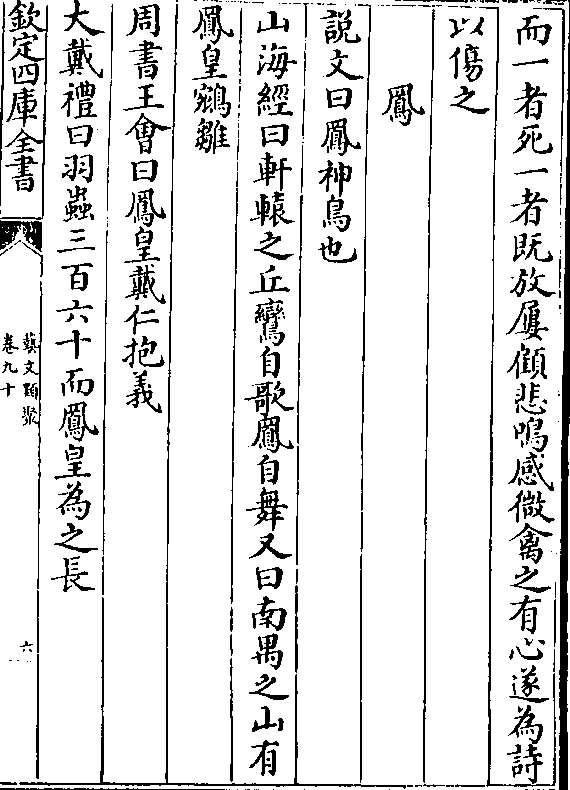 而一者死一者既放屢顧悲鳴感微禽之有心遂為詩
以傷之
鳳
説文曰鳳神鳥也
山海經曰軒轅之丘鸞自歌鳳自舞又曰南禺之山有
鳳皇鵷雛
周書王會曰鳳皇戴仁抱義
大戴禮曰羽蟲三百六十而鳳皇為之長
欽定四庫全書
藝文類聚
卷九十
六